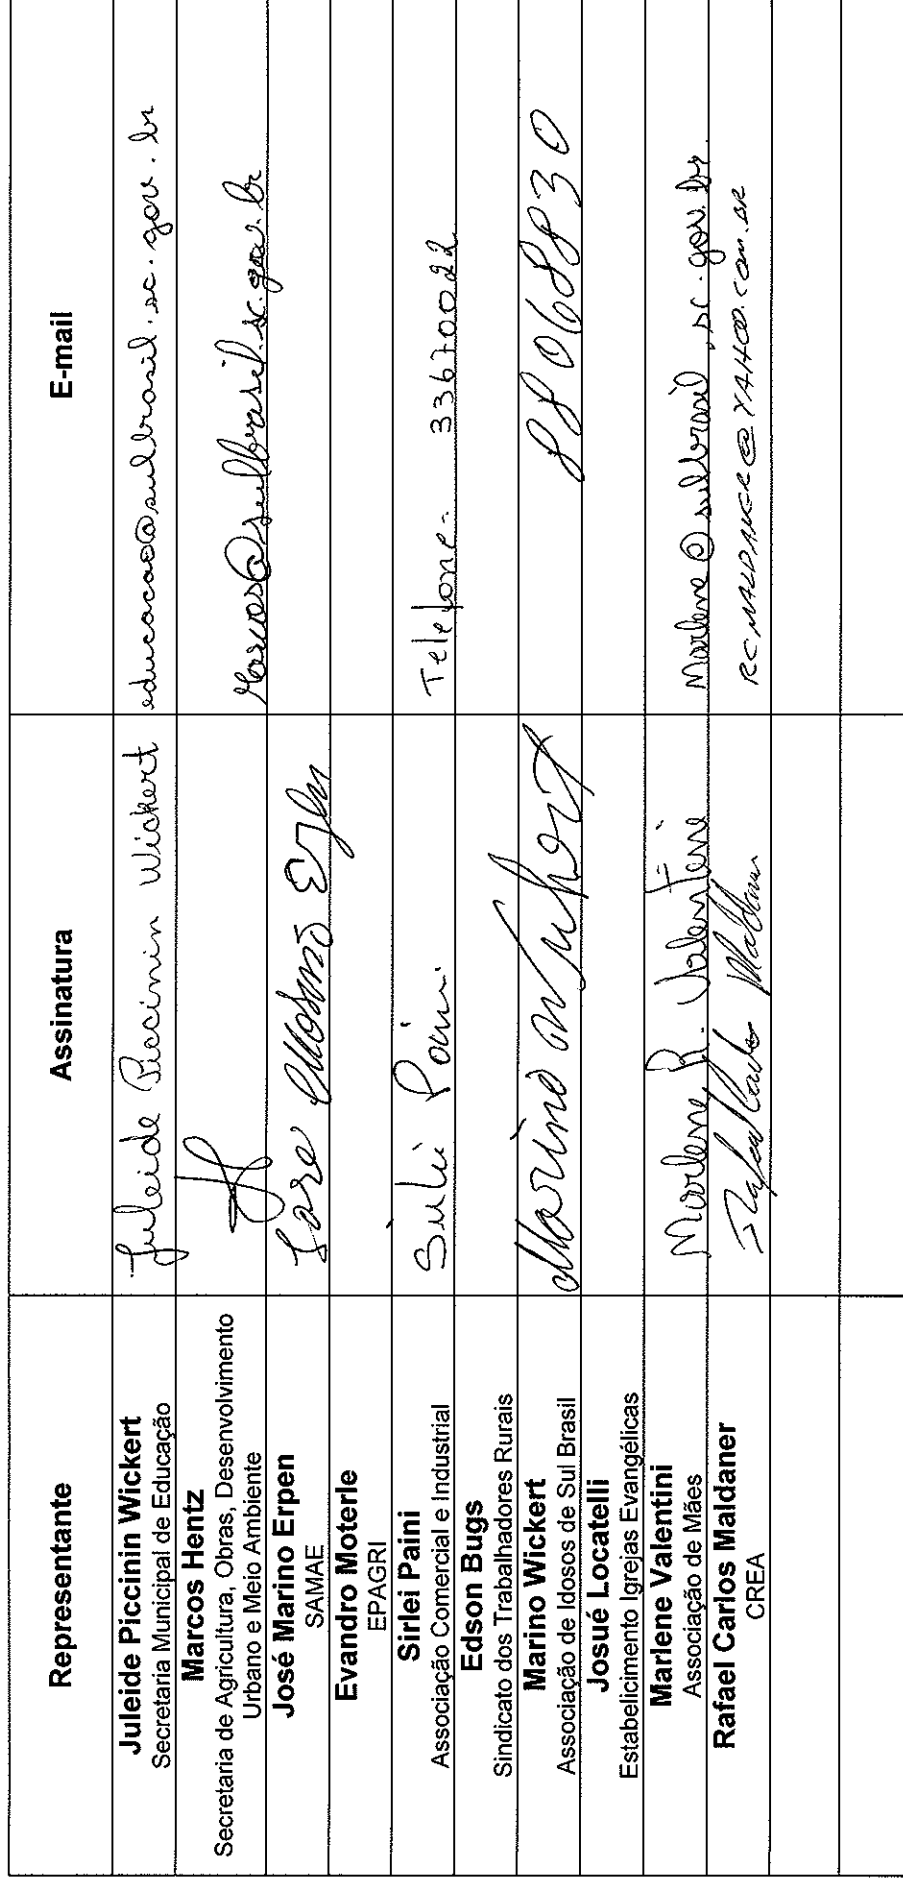 Representante
Assinatura
E-mail
Juleide Piccinin Wickert
Secretaria Municipal de Educação
Juleide Piccinin Wickert
educacao@sulbrasil.sc.gov.br
Marcos Hentz
Secretaria de Agricultura, Obras, Desenvolvimento
Urbano e Meio Ambiente
marcos@sulbrasil.sc.gov.br
José Marino Erpen
SAMAE
Jose Marino Erpen
Evandro Moterle
EPAGRI
Sirlei Paini
Associação Comercial e Industrial
Sirlei Paini
Telefone - 33670022
Edson Bugs
Sindicato dos Trabalhadores Rurais
Marino Wickert
Associação de Idosos de Sul Brasil
Marino Wickert
88068830
Josué Locatelli
Estabelicimento Igrejas Evangélicas
Marlene Valentini
Associação de Mães
Marlene R. Valentini
marlene@sulbrasil.sc.gov.br
Rafael Carlos Maldaner
CREA
Rafael Carlos Maldaner
RCMALDANER@YAHOO.COM.BR